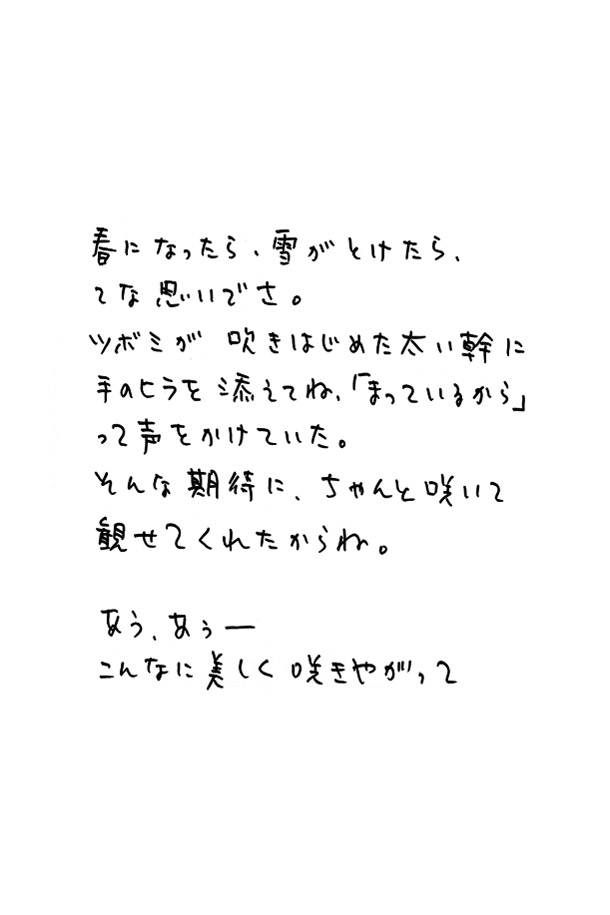 春になったら、雪がとけたら、
てな思いでさ。
ツボミが 吹きはじめた太い幹に
手のヒラを添えてね、「まっているから」
って声をかけていた。
そんな期待に、ちゃんと咲いて
観せてくれたからね。
あう、あぅー
こんなに美しく咲きやがって